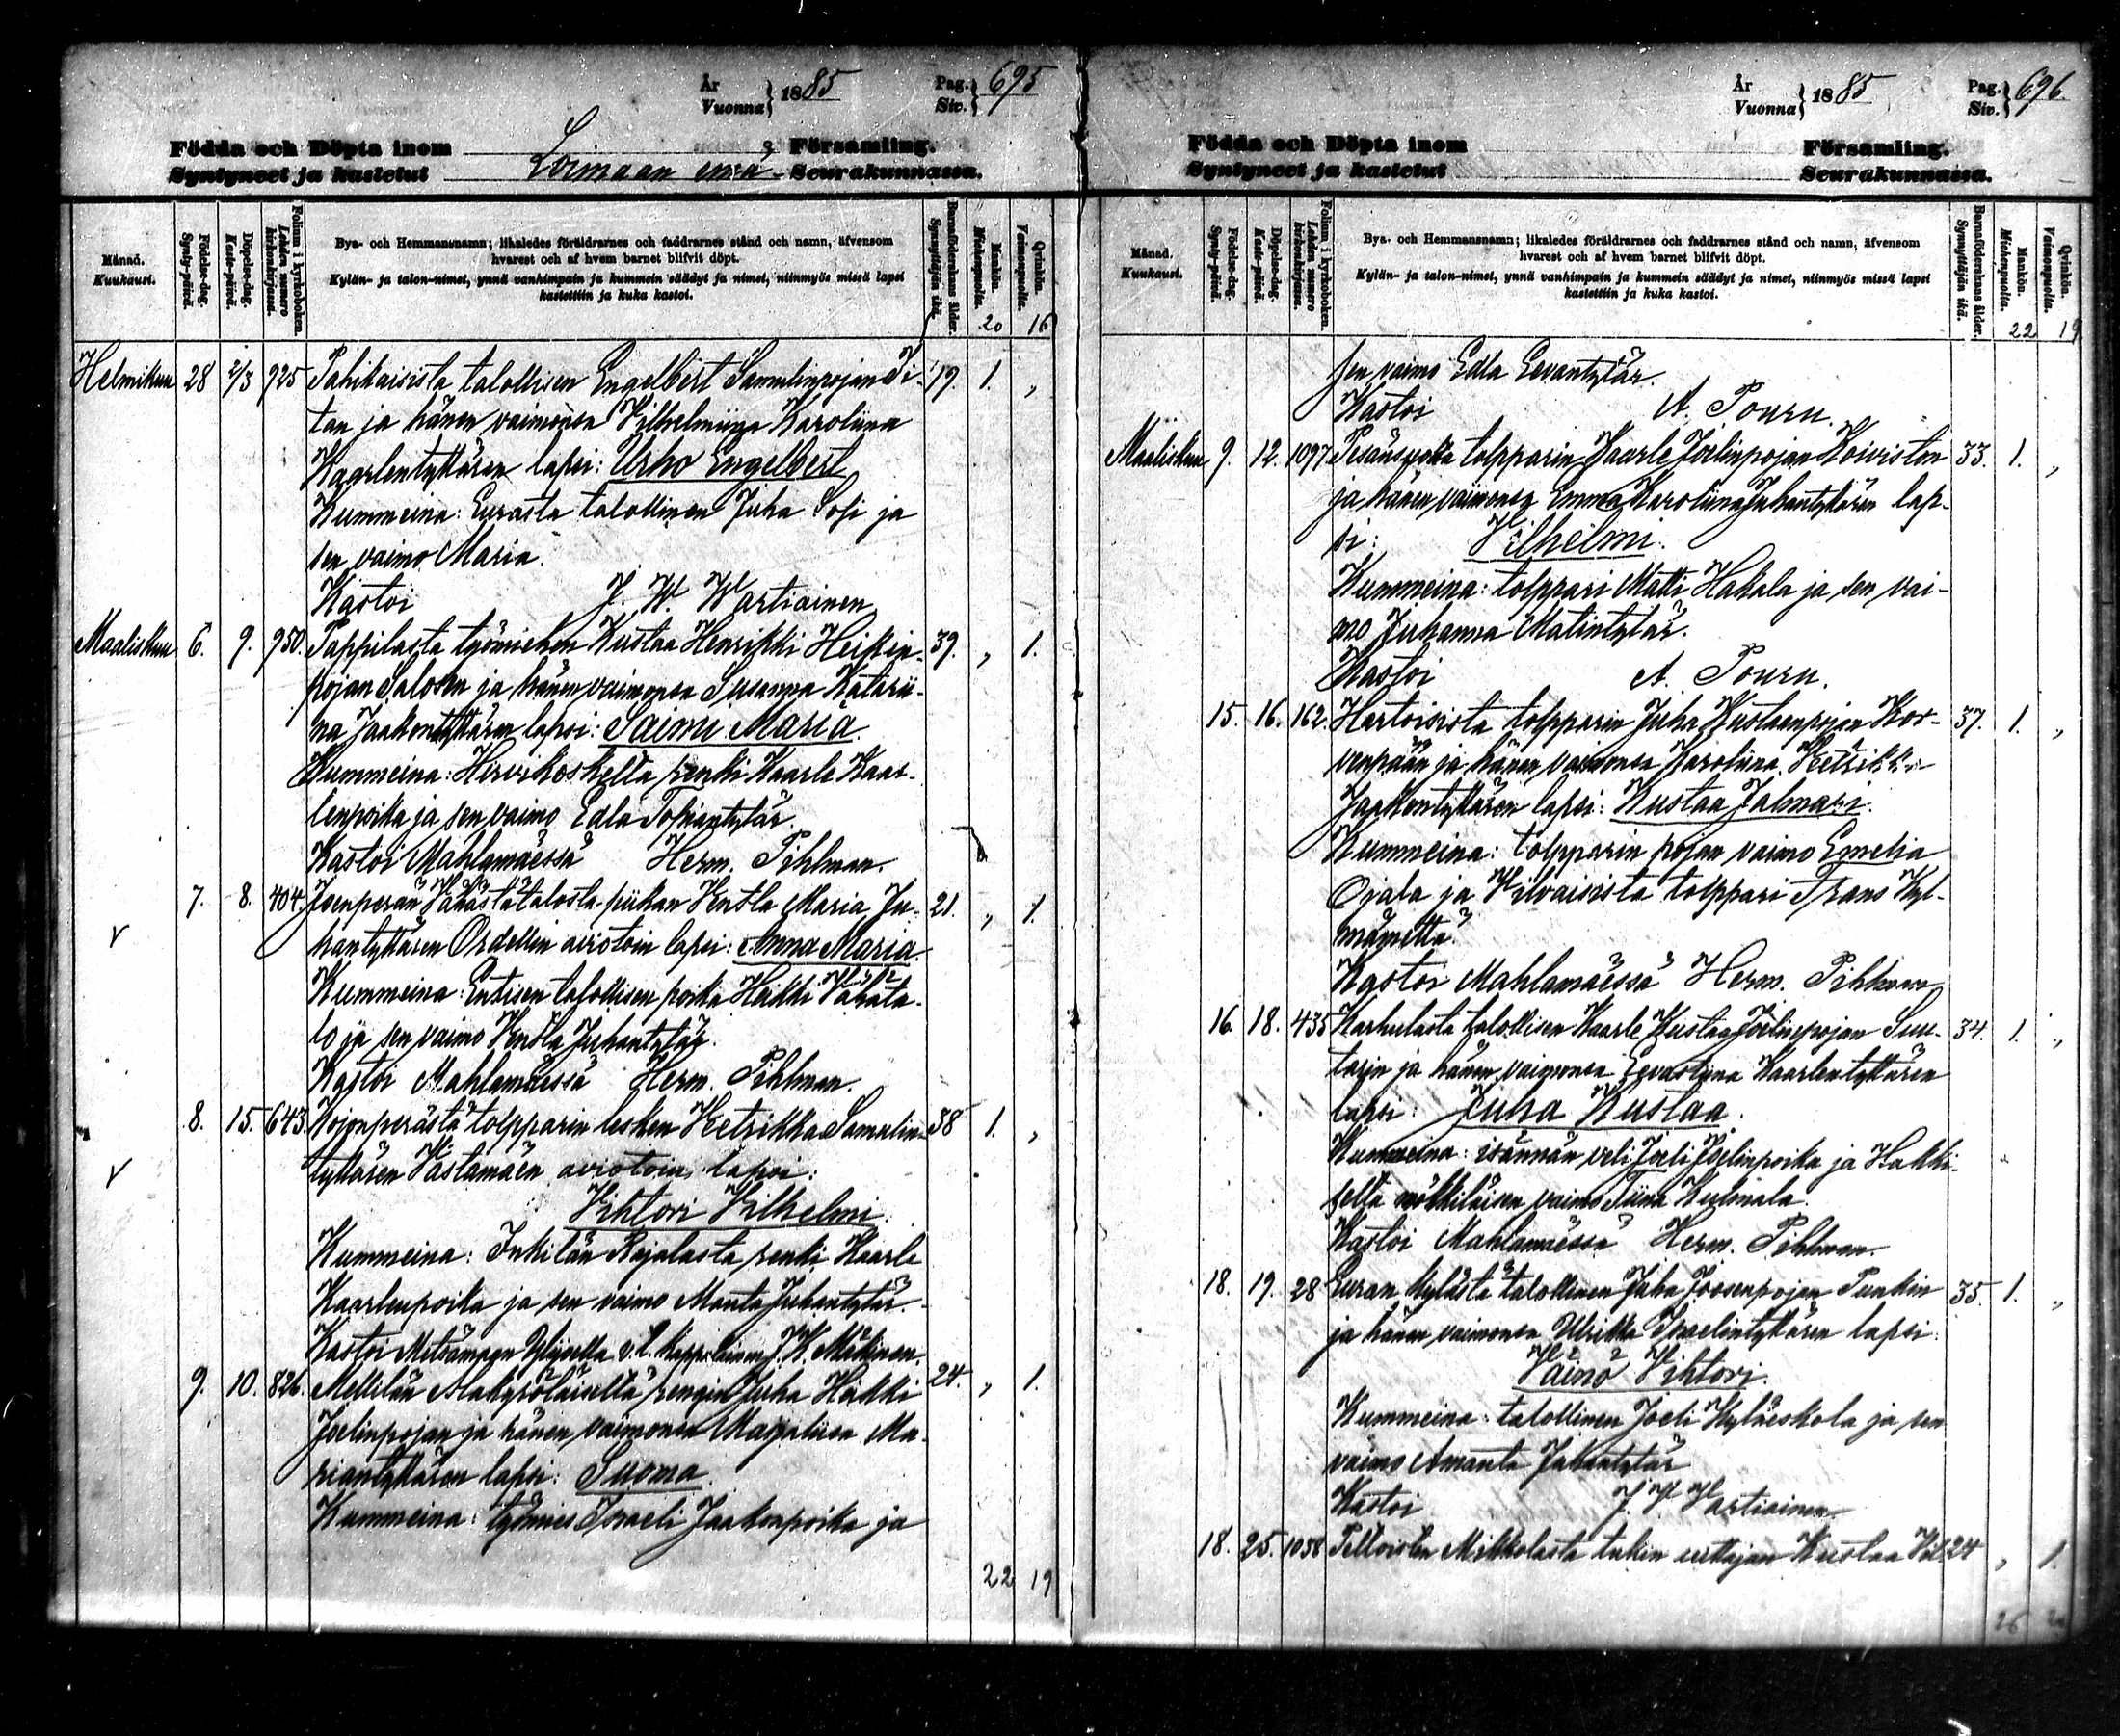 År
Vuonna } 1885
Pag.
Siv. } 695
Födda och Döpta inom Församling.
Syntyneet ja kastetut Loimaan emä- Seurakunnassa.
Månad.
Kuukausi.
Födelse-dag.
Synty-päivä.
Döpelse-dag.
Kaste-päivä.
Folium i kyrkoboken.
Lehden numero kirkonkirjassa.
Bys- och Hemmansnamn; likaledes föräldrarnes och faddrarnes stånd och namn, äfvensom
hvarest och af hvem barnet blifvit döpt.
Kylän- ja talon-nimet, ynnä vanhimpain ja kummein säädyt ja nimet, niinmyös missä lapsi
kastettiin ja kuka kastoi.
Barnaföderskans ålder.
Synnyttäjän ikä.
Mankön.
Miehenpuolia.
Qvinkön.
Vaimonpuolia.
20 16
Helmikuu 28 2/3 925 talollisen Engelbert Samulinpojan 19. 1. „
tan ja hänen vaimonsa Vilhelmiina Karoliina
Kaarlentyttären lapsi: Urho Engelbert
Kummeina: Eurasta talollinen Juha Sofi ja
sen vaimo Maria.
Kastoi J. W. Wartiainen
Maaliskuu 6. 9. 950. Pappilasta työmiehen Kustaa Henrikki Heikin- 39. „ 1.
pojan Salosen ja hänen vaimonsa Susanna Katarii-
na Jaakontyttären lapsi: Saimi Maria.
Kummeina: Hirvikoskelta renki Kaarle Kaar-
lenpoika ja sen vaimo Edla
Kastoi Mahlamäessä Herm. Pihlman.
7. 8. 404. Joenperän Vähästätalosta piikan Maria Ju- 21. „ 1.
hantyttären aviotoin lapsi: Anna Maria.
Kummeina: Entisen talollisen poika Heikki Vähäta-
lo ja sen vaimo Juhantytär.
Kastoi Mahlamäessä Herm. Pihlman.
8. 15. 643. Kojonperästä tolpparin lesken Hetrikka Samulin- 38 1. „
tyttären Västämäen aviotoin lapsi:
Vihtori Vilhelmi.
Kummeina: Inkilän Rajalasta renki Kaarle
Kaarlenpoika ja sen vaimo Manta Juhantytär.
Kastoi Metsämaan v.t. kappalainen J. K. Mäkinen.
9. 10. 826. Mellilän rengin Juha Heikki 24. „ 1.
Joelinpojan ja hänen vaimonsa Maijaliisa Ma-
riantyttären lapsi: Suoma.
Kummeina: työmies Israeli Jaakonpoika ja
22 19
År
Vuonna } 1885
Pag.
Siv. } 696
Födda och Döpta inom Församling.
Syntyneet ja kastetut Seurakunnassa.
Månad.
Kuukausi.
Födelse-dag.
Synty-päivä.
Döpelse-dag.
Kaste-päivä.
Folium i kyrkoboken.
Lehden numero kirkonkirjassa.
Bys- och Hemmansnamn; likaledes föräldrarnes och faddrarnes stånd och namn, äfvensom
hvarest och af hvem barnet blifvit döpt.
Kylän- ja talon-nimet, ynnä vanhimpain ja kummein säädyt ja nimet, niinmyös missä lapsi
kastettiin ja kuka kastoi.
Barnaföderskans ålder.
Synnyttäjän ikä.
Mankön.
Miehenpuolia.
Qvinkön.
Vaimonpuolia.
22 19
sen vaimo Edla Eevantytär.
Kastoi A. Pouru.
Maaliskuu 9. 12. 1097 tolpparin Kaarle Joelinpojan Koiviston 33. 1. „
ja hänen vaimonsa Emma Karoliina Juhantyttären lap-
si: Vilhelmi.
Kummeina: tolppari Matti Hakala ja sen vai-
mo Juhanna Matintytär.
Kastoi A. Pouru.
15. 16. 162. Hartoisista tolpparin Juha Kustaanpojan Kor- 37. 1. „
venpään ja hänen vaimonsa Karoliina Hetrikka
Jaakontyttären lapsi: Kustaa Jalmari.
Kummeina: tolpparin pojan vaimo Emelia
Ojala ja Vilvaisista tolppari Frans Kyl-
mämettä.
Kastoi Mahlamäessä Herm. Pihlman
16. 18. 435 Karhulasta talollisen Kaarle Kustaa Joelinpojan Suu- 34. 1. „
tarin ja hänen vaimonsa Eevastiina Kaarlentyttären
lapsi: Juha Kustaa.
Kummeina: isännän veli Joeli Joelinpoika ja Hakki-
selta mökkiläisen vaimo Kulmala.
Kastoi Mahlamäessä Herm. Pihlman.
18. 19. 28 Euran kylästä talollinen Juha Joosenpojan Punkin 35. 1. „
ja hänen vaimonsa Ulrikka Israelintyttären lapsi:
Väinö Vihtori.
Kummeina: talollinen Joeli Kyläeskola ja sen
vaimo Amanta Juhantytär
Kastoi J. W. Wartiainen
18. 25. 1058 Peltoisten Mikkolasta Kustaa Vil 24 „ 1.
26 20